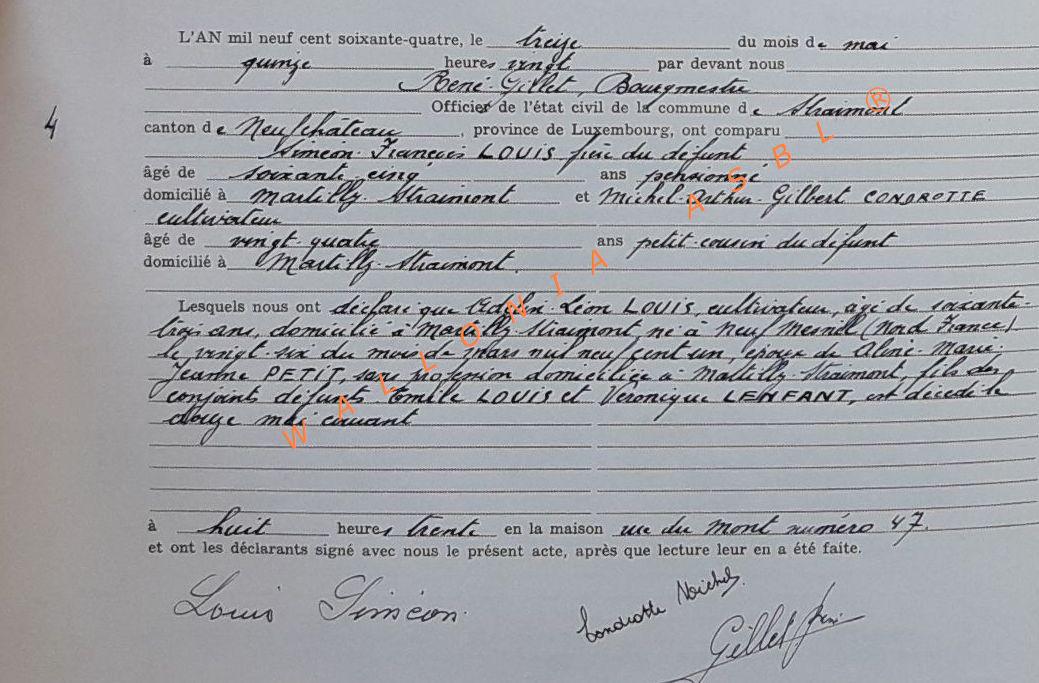 L'AN mil neuf cent soixante-quatre, le treize du mois de mai
à quinze heures vingt par devant nous
René Gillet, Bourgmestre
Officier de l'état civil de la commune de Straimont
4
canton de Neufchâteau, province de Luxembourg, ont comparu
Siméon-François LOUIS frère du défunt
âgé de soixante-cinq ans pensionné
domicilié à Martilly-Straimont et Michel-Arthur-Gilbert CONDROTTE
cultivateur
âgé de vingt-quatre ans petit-cousin du défunt
domicilié à Martilly-Straimont.
Lesquels nous ont déclaré que Léon LOUIS, cultivateur, âgé de soixante-
trois ans, domicilié à Martilly-Straimont né à Neuf Mesnil (Nord France)
le vingt-six du mois de mars mil neuf cent un, époux de Aline-Marie-
Jeanne PETIT, sans profession domiciliée à Martilly-Straimont, fils des
conjoints défunts Emile LOUIS et Véronique LENFANT, est décédé le
douze mai courant
à huit heures trente en la maison rue du Mont numéro 47.
et ont les déclarants signé avec nous le présent acte, après que lecture leur en a été faite.
Louis Siméon.
Condrotte Michel.
Gillet René
WALLONIA ASBL ®